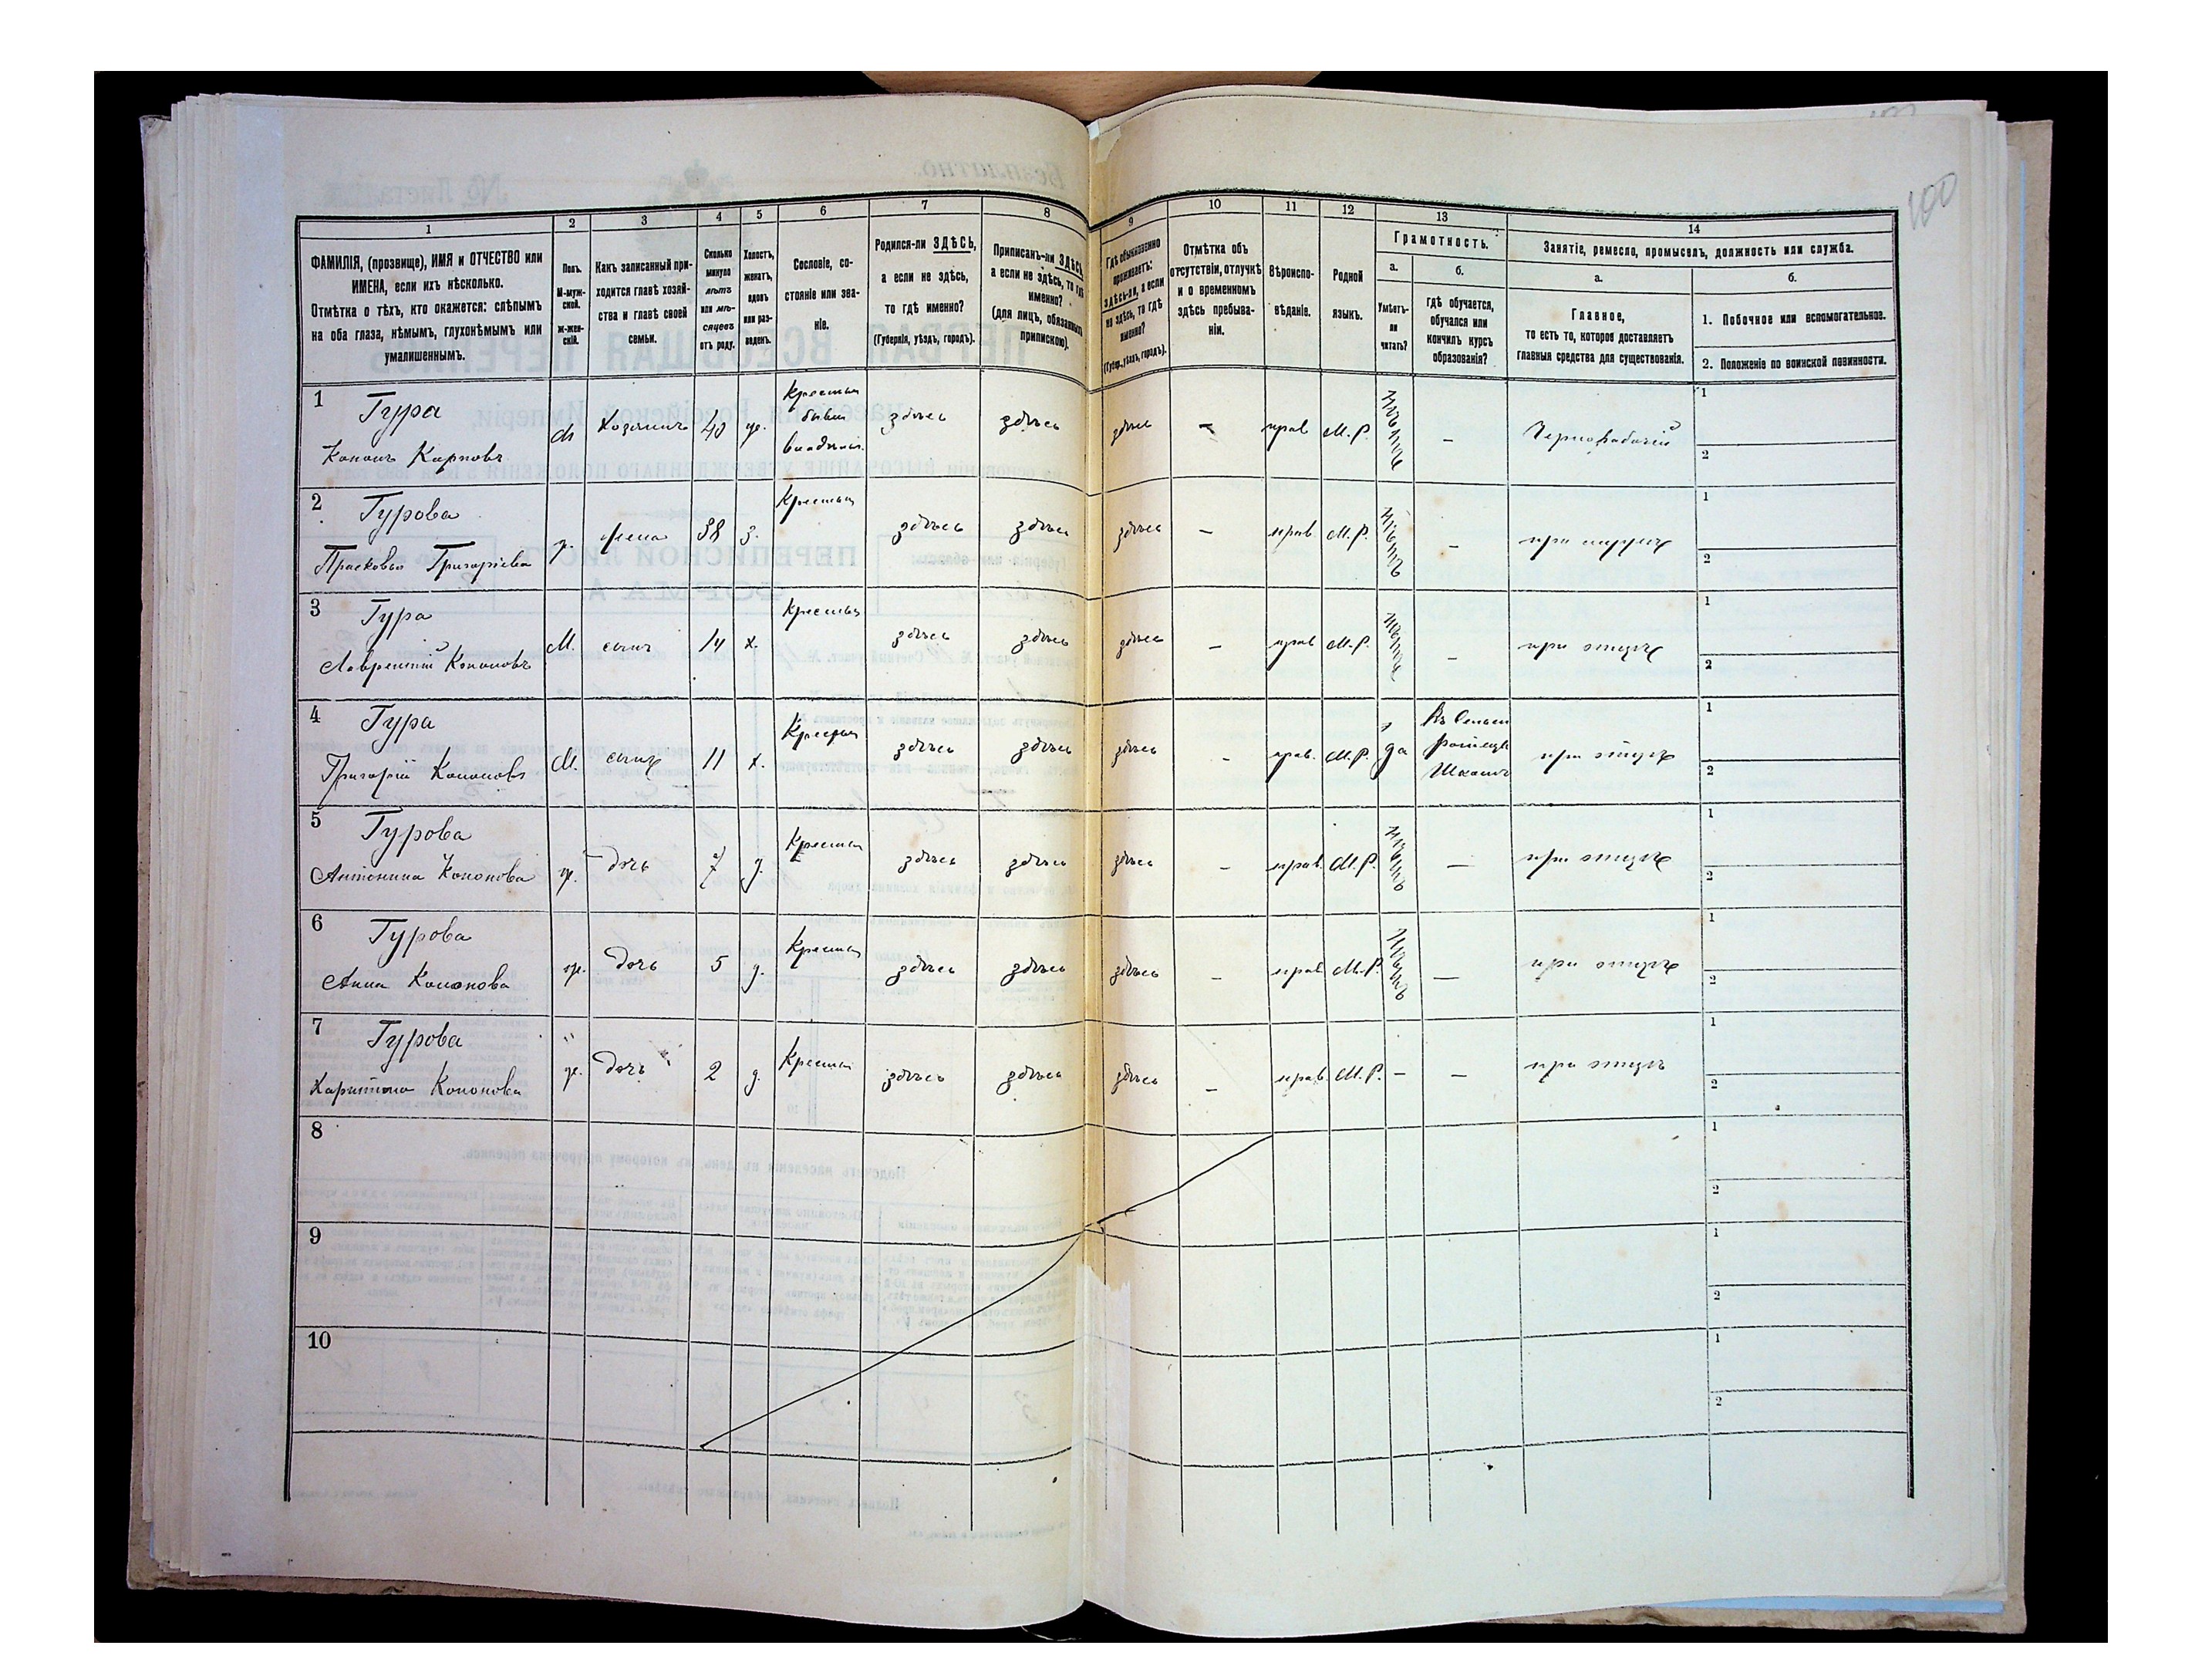 100
1
2
3
4
5
6
7
8
9
10
11
12
13
14
ФАМИЛІЯ, (прозвище), ИМЯ и ОТЧЕСТВО или
ИМЕНА, если ихъ нѣсколько.
Отмѣтка о тѣхъ, кто окажется: слѣпымъ
на оба глаза, нѣмымъ, глухонѣмымъ или
умалишеннымъ.
Полъ.
М-муж-
ской.
ж-жен-
скій.
Какъ записанный при-
ходится главѣ хозяй-
ства и главѣ своей
семьи.
Сколько
минуло
лѣтъ
или мѣ-
сяцевъ
отъ роду.
Холостъ,
женатъ,
вдовъ
или раз-
веденъ.
Сословіе, со-
стояніе или зва-
ніе.
Родился-ли ЗДѢСЬ,
а если не здѣсь,
то гдѣ именно?
(Губернія, уѣздъ, городъ).
Приписанъ-ли ЗДѢСЬ,
а если не здѣсь, то гдѣ
именно?
(для лицъ, обязанныхъ
припискою).
Гдѣ обыкновенно
проживаетъ:
ЗДѢСЬ-ли, а если
не здѣсь, то гдѣ
именно?
(Губер., уѣздъ, городъ).
Отмѣтка объ
отсутствіи, отлучкѣ
и о временномъ
здѣсь пребыва-
ніи.
Вѣроиспо-
вѣданіе.
Родной
языкъ.
Грамотность.
а.
Умѣетъ-
ли
читать?
б.
гдѣ обучается,
обучался или
кончилъ курсъ
образованія?
Занятіе, ремесло, промыселъ, должность или служба.
а.
Главное,
то есть то, которое доставляетъ
главныя средства для существованія.
б.
1. Побочное или вспомогательное.
2. Положеніе по воинской повинности.
1 Гура
Кононъ Карповъ
М Хозяинъ 40 ж. Крестьян бывш владѣльч. здѣсь здѣсь здѣсь — прав М.Р. нѣтъ — Чернорабочій 1 2
2 Гурова
Прасковья Григоріева
ж. жена 38 з. Крестьян здѣсь здѣсь здѣсь — прав М.Р. нѣтъ — при мужѣ 1 2
3 Гура
Лаврентій Кononовъ
М. сынъ 14 х. Крестьян здѣсь здѣсь здѣсь — прав М.Р. нѣтъ — при отцѣ 1 2
4 Гура
Григорій Кононовъ
М. сынъ 11 х. Крестьян здѣсь здѣсь здѣсь — прав. М.Р. да при отцѣ 1 2
5 Гурова
Антонина Кононова
ж. дочь 7 д. Крестьян здѣсь здѣсь здѣсь — прав. М.Р. нѣтъ — при отцѣ 1 2
6 Гурова
Анна Кононова
ж. дочь 5 д. Крестьян здѣсь здѣсь здѣсь — прав М.Р. нѣтъ — при отцѣ 1 2
7 Гурова
Харитина Кононова
ж. дочь 2 д. Крестьян здѣсь здѣсь здѣсь — прав М.Р. — — при отцѣ 1 2
8 1 2
9 1 2
10 1 2